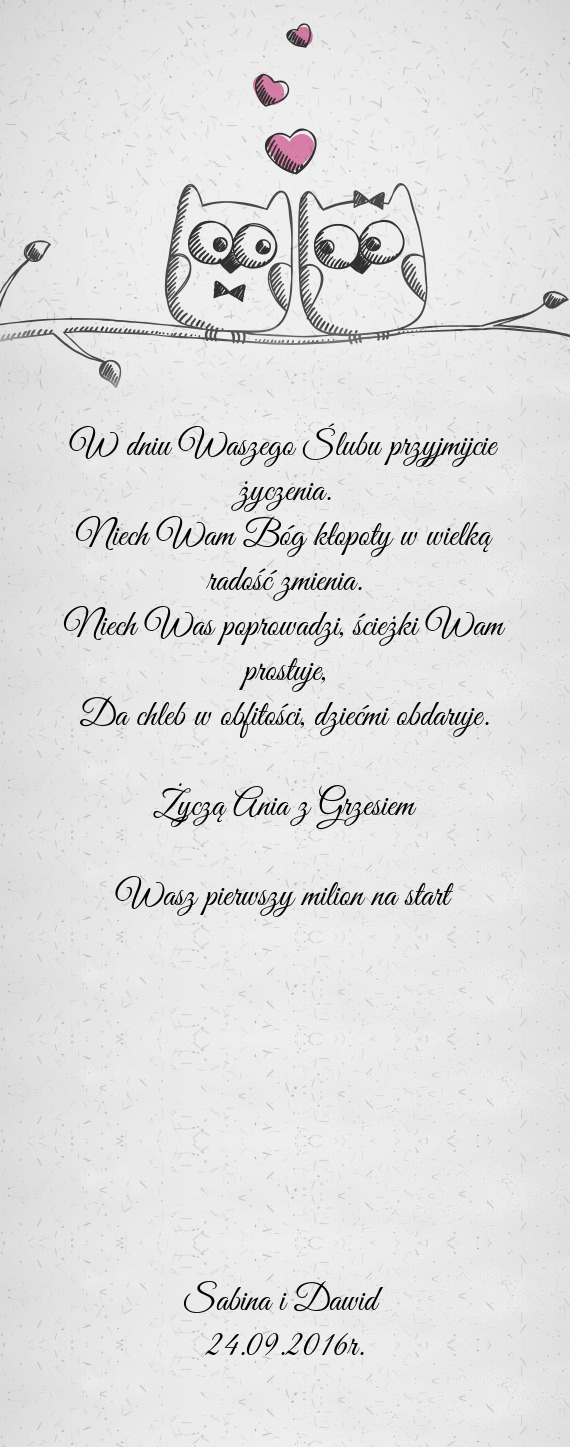 W dniu Waszego Ślubu przyjmijcie
życzenia.
Niech Wam Bóg kłopoty w wielką
radość zmienia.
Niech Was poprowadzi, ścieżki Wam
prostuje,
Da chleb w obfitości, dziećmi obdaruje.
Życzą Ania z Grzesiem
Wasz pierwszy milion na start
Sabina i Dawid
24.09.2016r.